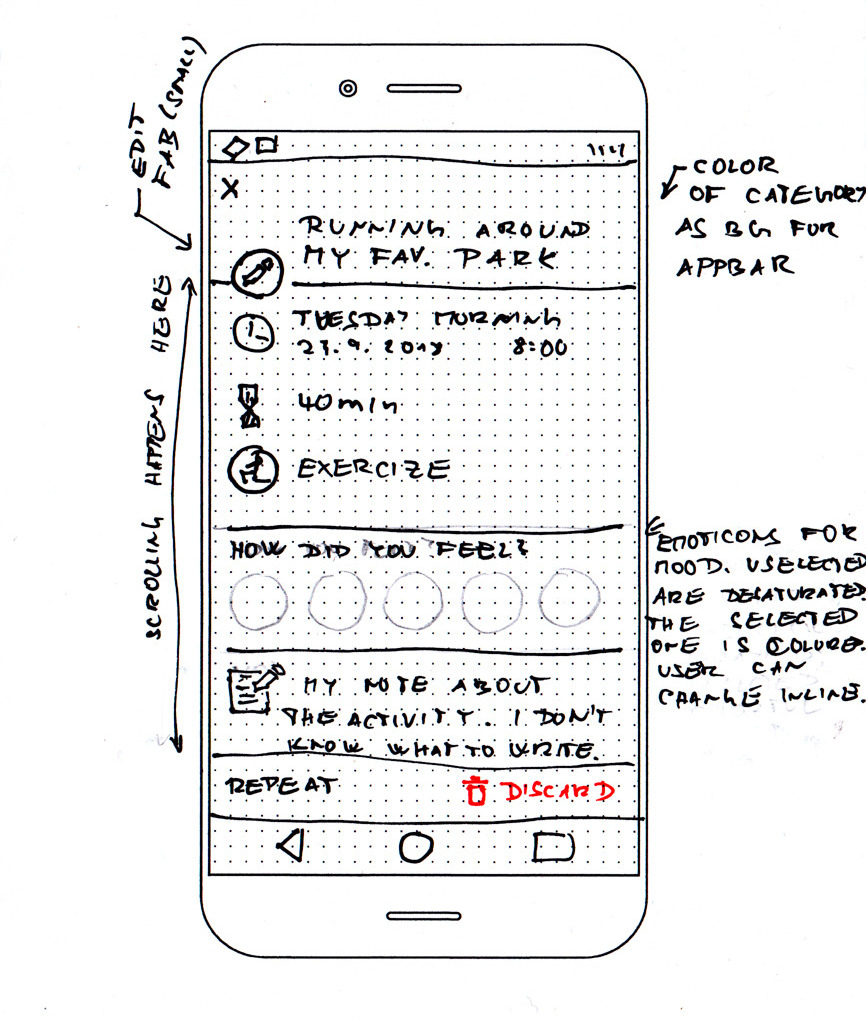 EDIT
FAB (SMALL)
COLOR
OF CATEGORY
AS BG FOR
APPBAR
X
RUNNING AROUND
MY FAV. PARK
TUESDAY MORNING
27.9. 2018 8:00
40min
EXERCIZE
SCROLLING HAPPENS HERE
HOW DID YOU FEEL?
EMOTICONS FOR
MOOD. USELECTED
ARE DESATURATED.
THE SELECTED
ONE IS COLORE.
USER CAN
CHANGE INLINE.
MY NOTE ABOUT
THE ACTIVITY. I DON'T
KNOW WHAT TO WRITE.
REPEAT DISCARD